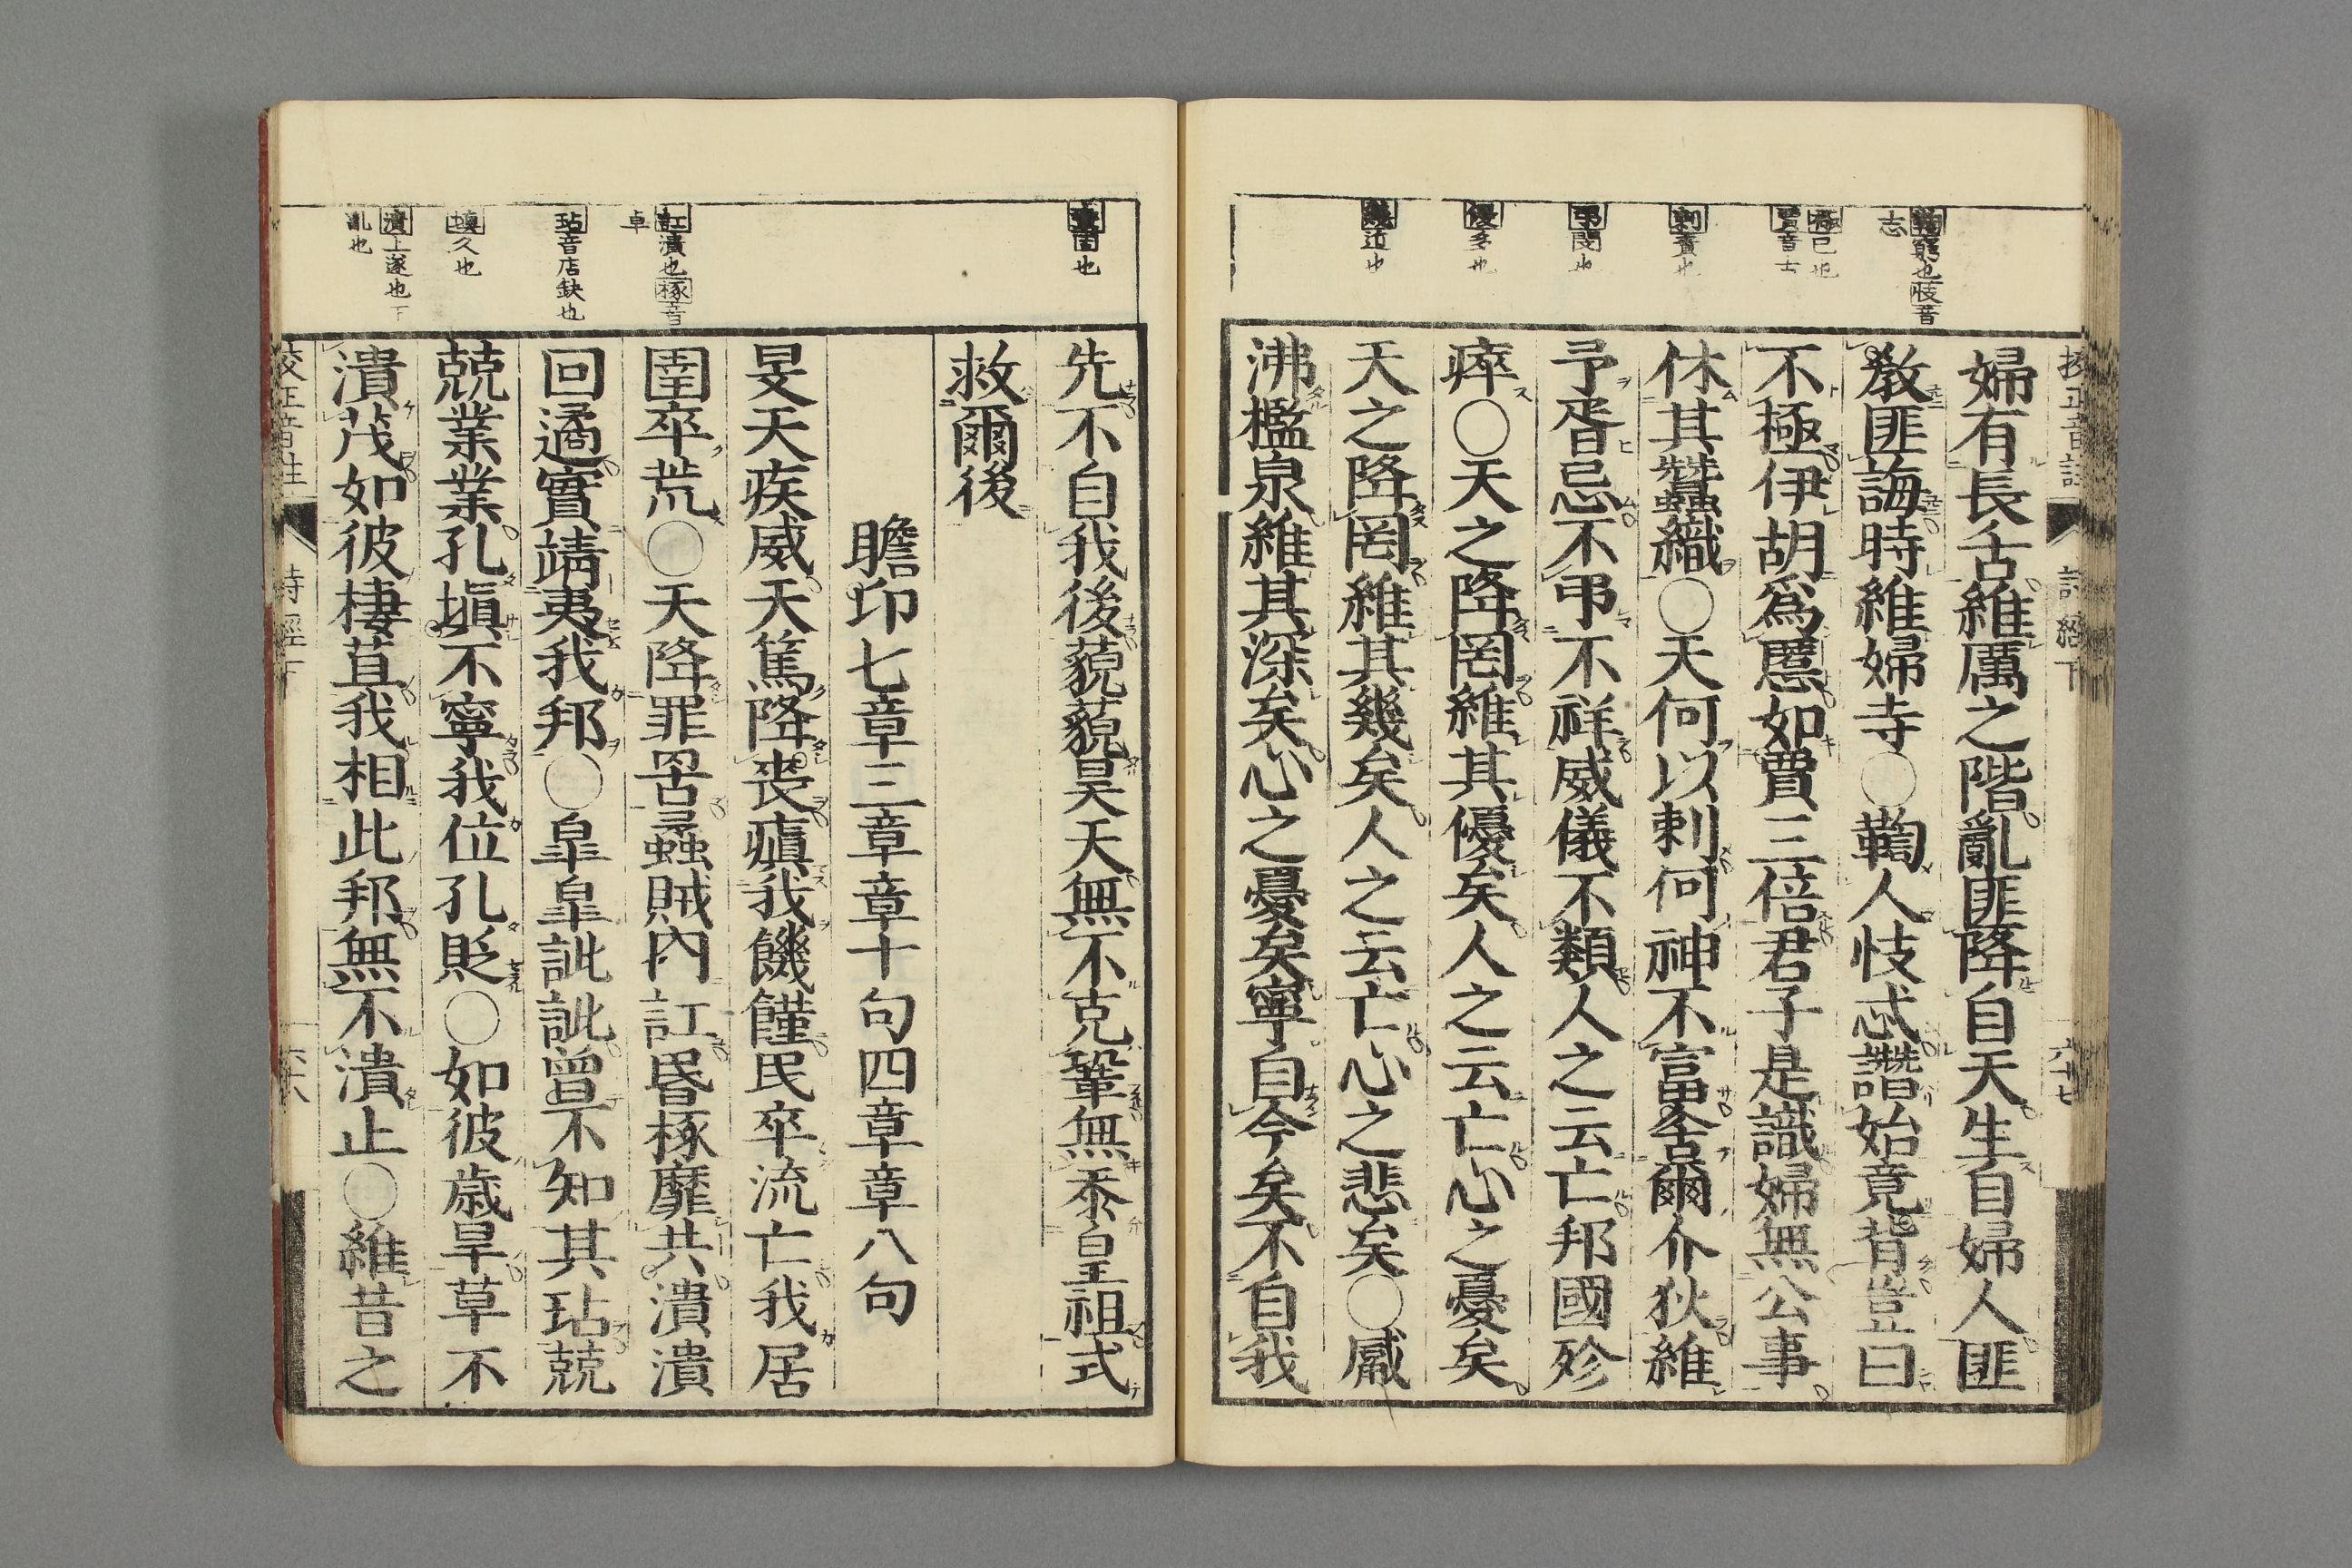 婦有長舌維厲之階亂匪降自天生自婦人匪
教匪誨時維婦寺○鞫人忮忒譖始竟背豈曰
不極伊胡爲慝如賈三倍君子是識婦無公事
休其蠶織○天何以刺何神不富舍爾介狄維
予胥忌不弔不祥威儀不類人之云亡邦國殄
瘁○天之降罔維其優矣人之云亡心之憂矣
天之降罔維其幾矣人之云亡心之悲矣○觱
沸檻泉維其深矣心之憂矣寧自今矣不自我
鞫窮也忮音
志
極已也
賈音古
刺責也
弔閔也
優多也
幾近也
詩經下
六十七
先不自我後藐藐昊天無不克鞏無忝皇祖式
救爾後
瞻卬七章三章章十句四章章八句
旻天疾威天篤降喪瘨我饑饉民卒流亡我居
圉卒荒○天降罪罟蟊賊內訌昬椓靡共潰潰
回遹實靖夷我邦○皐皐訿訿曾不知其玷兢
兢業業孔塡不寧我位孔貶○如彼歲旱草不
潰茂如彼棲苴我相此邦無不潰止○維昔之
鞏固也
訌潰也椓音
卓
玷音店缺也
塡久也
潰上遂也下
亂也
校正音註
詩經下